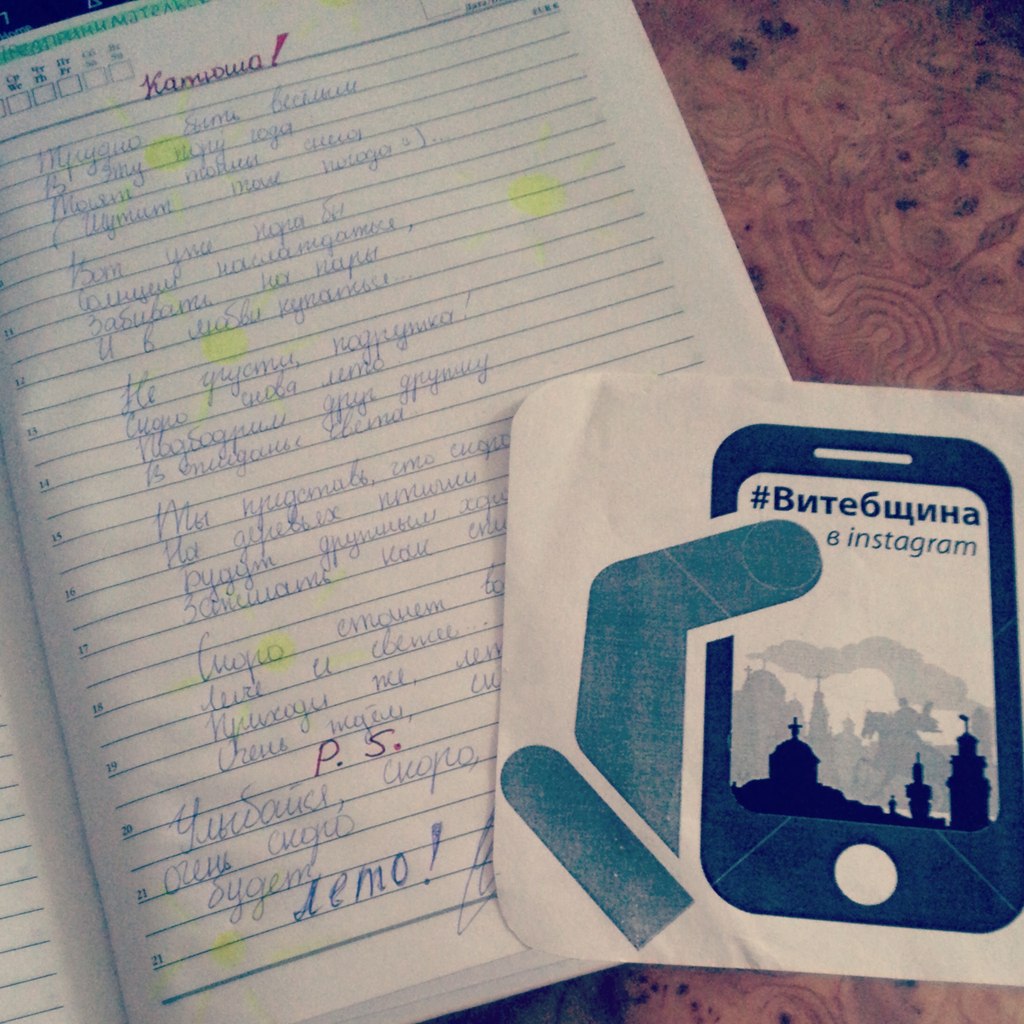 Ср Чт Пт Сб Вс
We Th Fr Sa Su
Катюша!
Трудно быть весёлым
В эту пору года
Тают тонны снега
( Шутит так погода =)...
Вот уже пора бы
Солнцем наслаждаться,
Забивать на пары
И в любви купаться...
Не грусти, подружка!
Скоро снова лето
Подбодрим друг дружку
В ожиданье света
Ты представь, что скоро
На деревьях птички
Будут дружным
Скоро станет
Легче и светлее...
Приходи же,
Очень ждём,
P. S.
Улыбайся, скоро,
очень скоро
будет
лето!
11
12
13
14
15
16
17
18
19
20
21
21
#Витебщина
в instagram